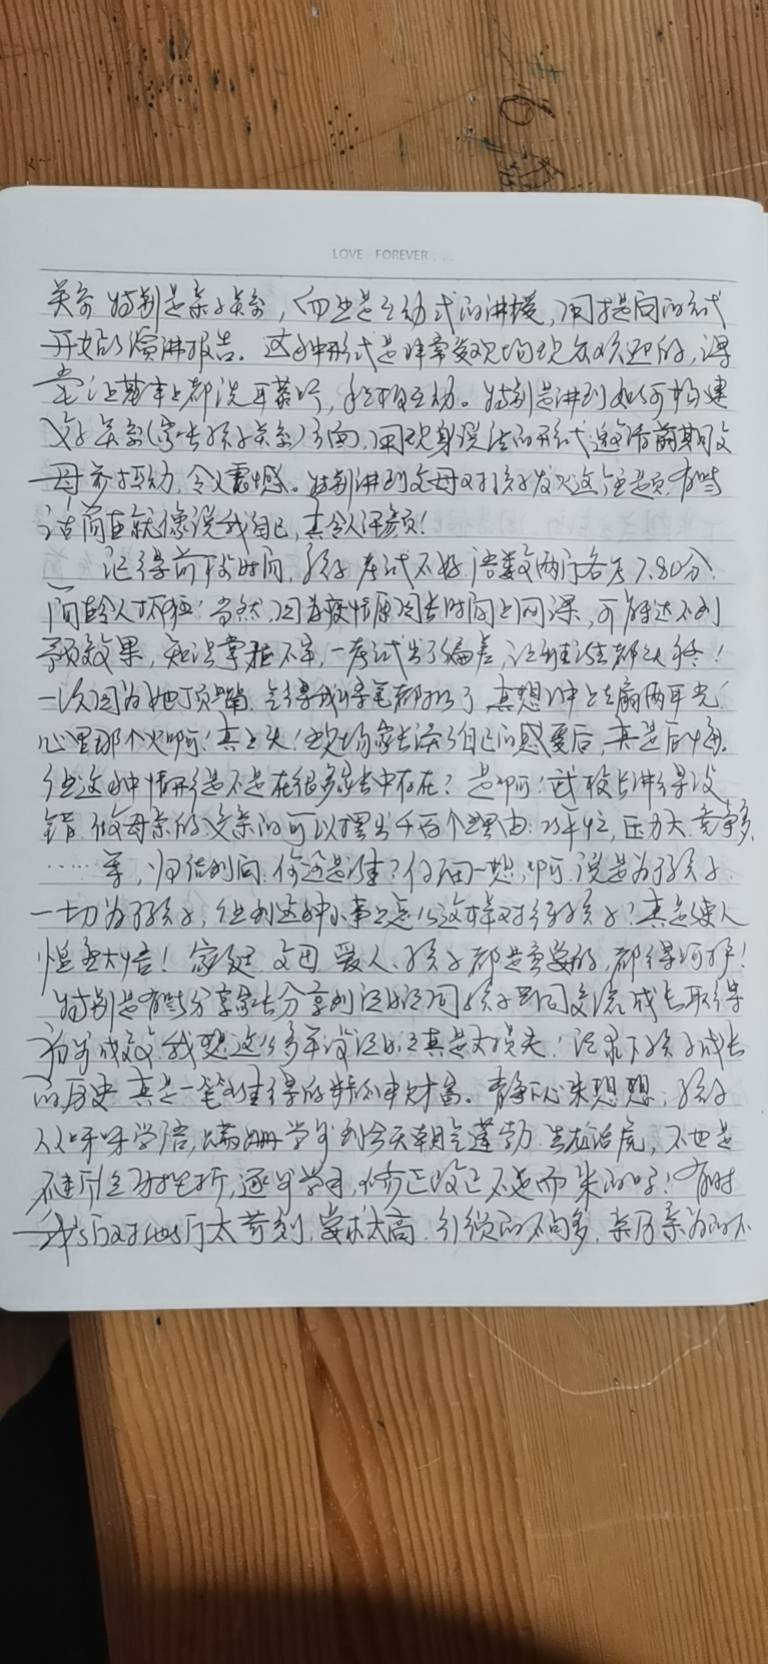 LOVE FOREVER...
关系 特别是亲子关系,而且是互动式的讲授,用提问的方式
开始的演讲报告。这种形式是非常受现场观众欢迎的,课
堂上基本上都洗耳恭听,积极互动。特别是讲到如何构建
父子关系(家长孩子关系)方面,用现身说法的形式邀请前期父
母亲互动,令人震撼。特别讲到父母对孩子发火这个主题,有些
话简直就像说我自己,真令人汗颜!
记得前段时间,孩子考试不好,语数两门各考7.80分.
简直令人抓狂!当然,因为疫情原因长时间上网课,可能达不到
预效果,知识掌握不牢,一考试出了偏差,让谁谁都上火!
一次因为她顶嘴,气得我将笔都扔了,真想冲上去扇两耳光!
心里那个火啊!真上火!现场家长谈了自己的感受后,真是后悔.
但这种情形是不是在很多家长中存在?是啊!校长讲得没
错,做母亲的父亲的可以摆出千百个理由:压力大.竞争多.
……等,归结到问.你还是谁?仔细一想,啊,说是为了孩子.
一切为了孩子,但到这种小事上怎么这样对待孩子?真是使人
恍然大悟!家庭 父母 爱人、孩子都是重要的,都得呵护!
特别是有些分享家长分享到记日记同孩子共同交流,成长取得
有些成效,我想这么多年没记日记真是大损失!记录下孩子成长
的历史,真是一笔难得的精神财富。静下心来想想,孩子
从呀呀学语,蹒跚学步到今天朝气蓬勃.生龙活虎,不也是
不断经历挫折,逐步学习,修正改正不足而来的吗!有时
我们对她们太苛刻,要求太高.引领的不问多,亲历亲为的不